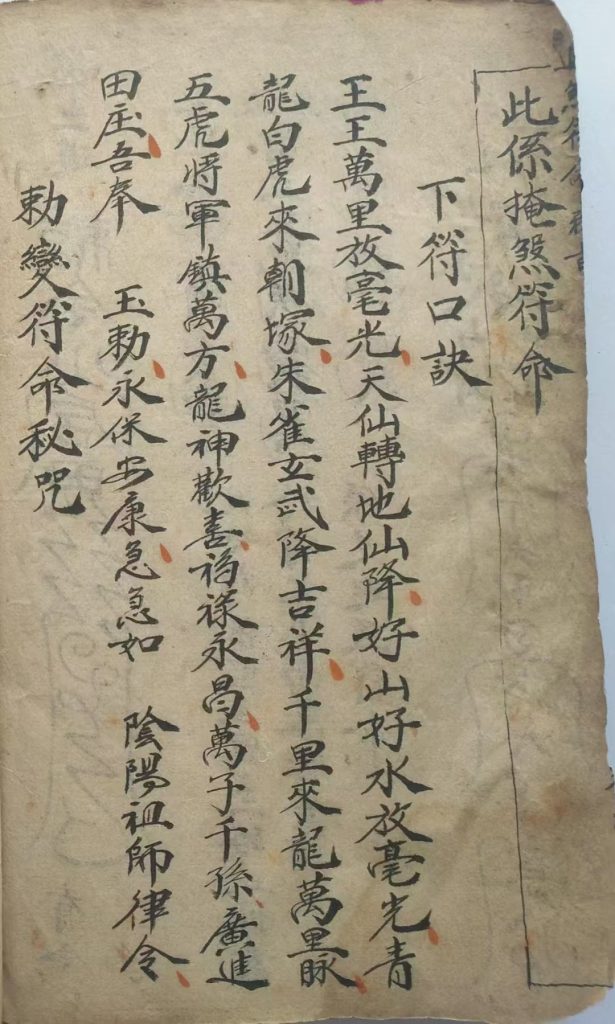 此係掩煞符命
下符口訣
王王萬里放毫光天仙轉地仙降好山好水放毫光青
龍白虎來朝塚朱雀玄武降吉祥千里來龍萬里脉
五虎將軍鎮萬方龍神歡喜福祿永昌萬子千孫廣進
田庄吾奉 玉勅永保安康急急如 陰陽祖師律令
勅變符命秘咒